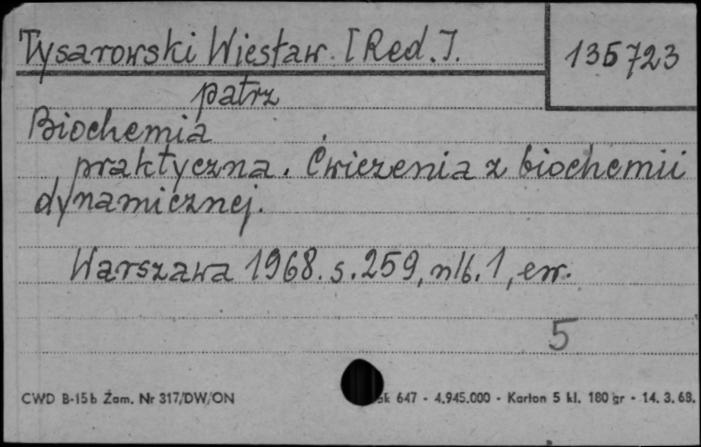 Tysarowski Wiesław. [Red.].
135723
patrz
Biochemia
praktyczna. Ćwiczenia z biochemii
dynamicznej.
Warszawa 1968. s. 259, nlb. 1, err.
5
CWD B-15b Zam. Nr 317/DW/ON
647 - 4.945.000 - Karton 5 kl. 180 gr - 14. 3. 68.